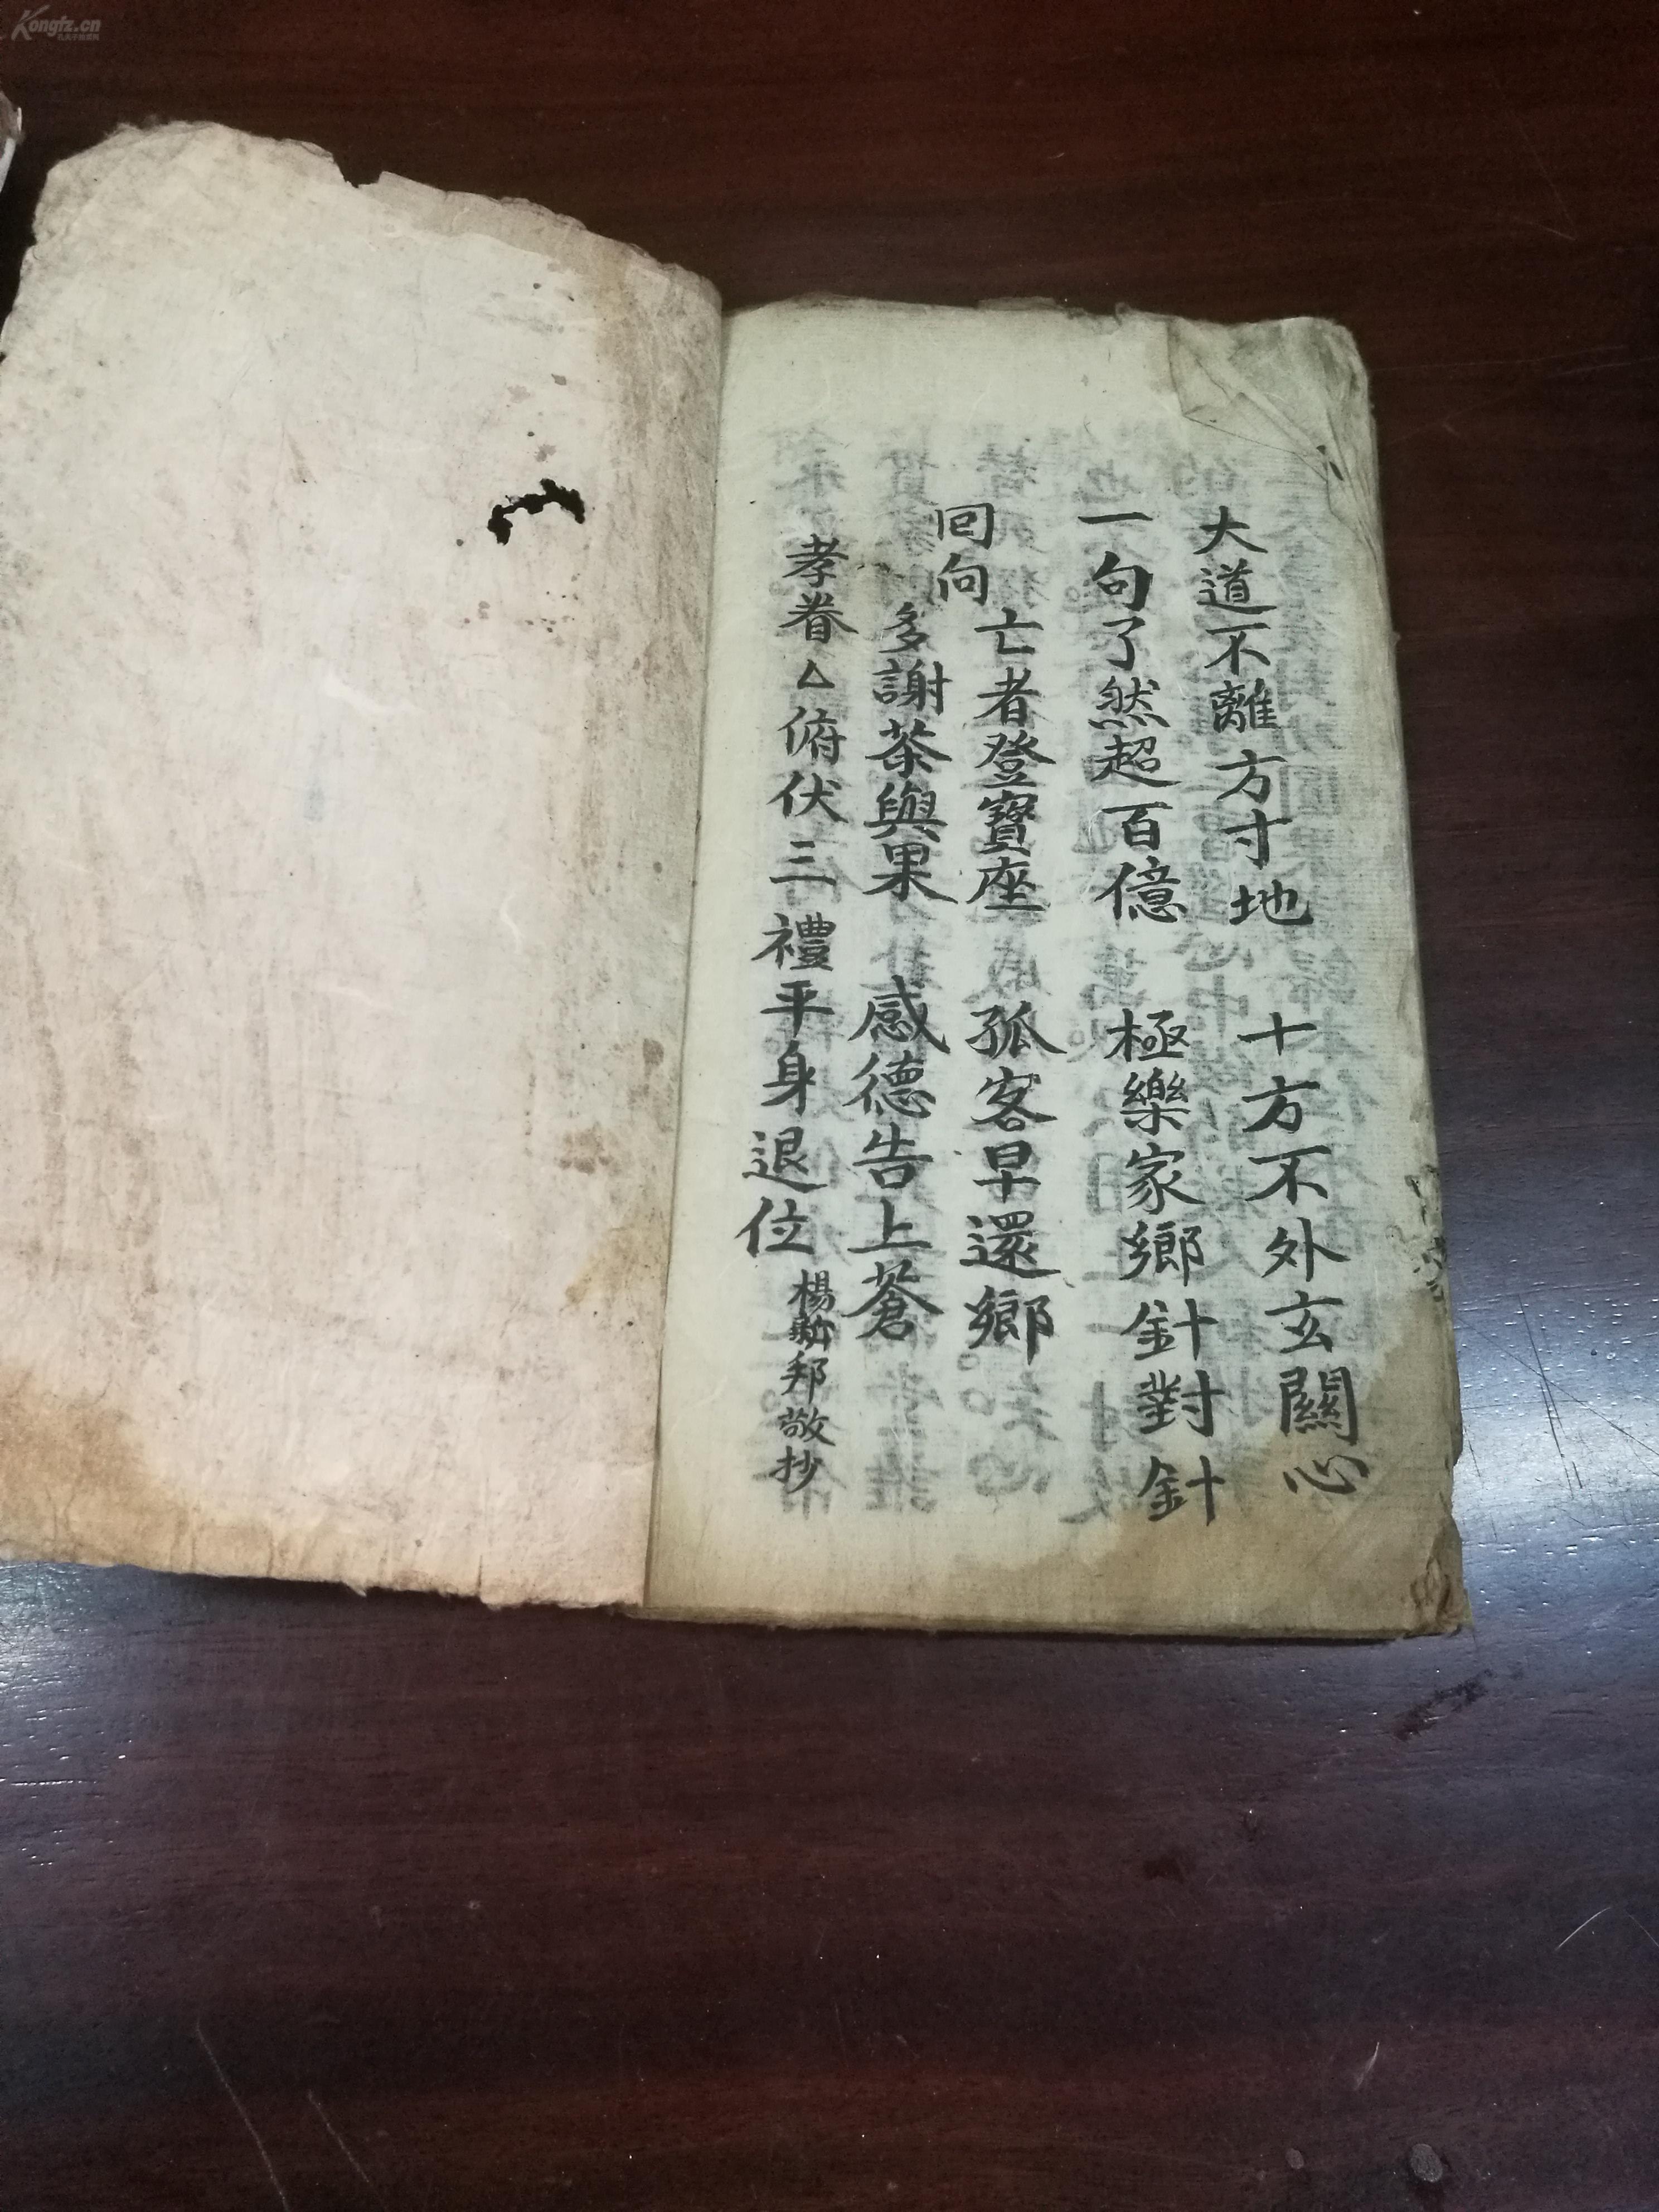 大道不離方寸地 十方不外玄關心
一句了然超百億 極樂家鄉針對針
回向
亡者登寶座 孤客早還鄉
多謝茶與果 感德告上蒼
孝眷△俯伏三禮平身退位
楊勷邦敬抄
Kongfz.cn